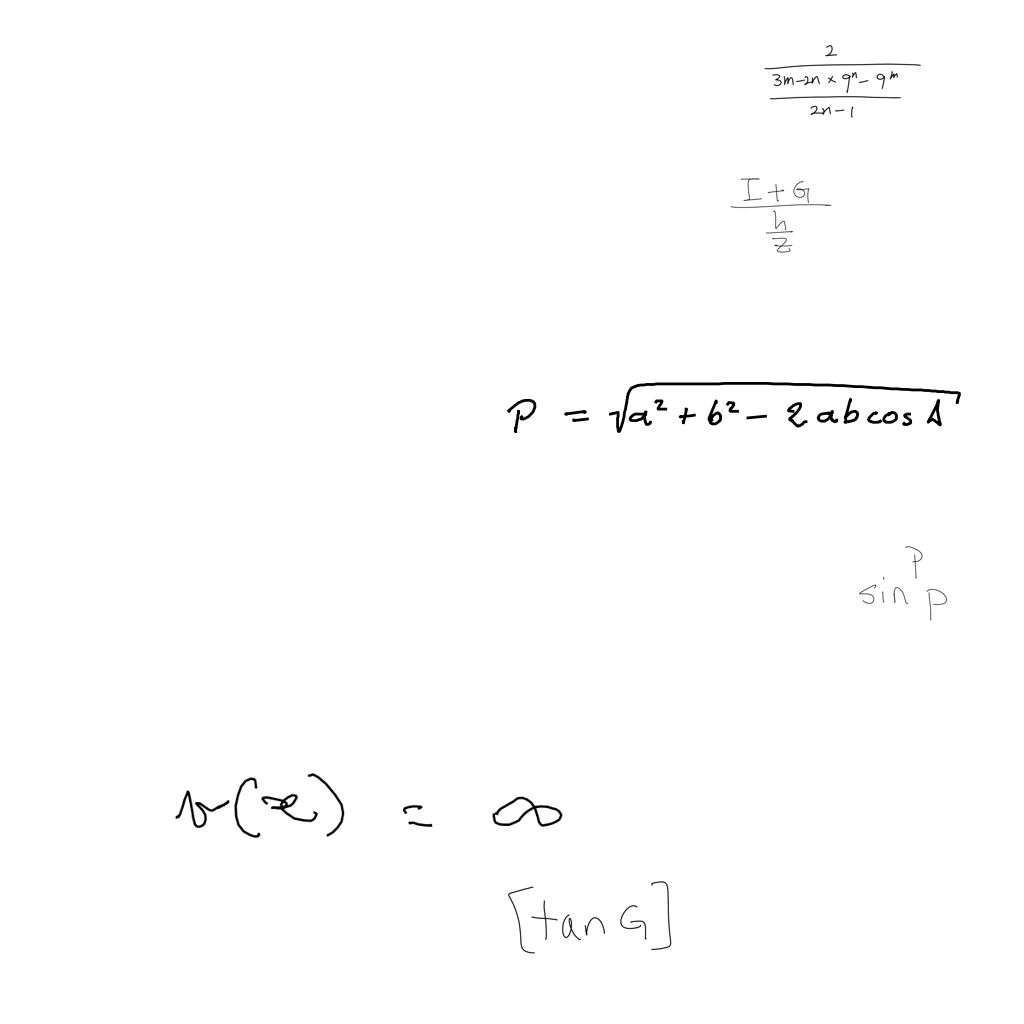 \frac{2}{\frac{3m-2n \times 9^n - 9^m}{2n-1}}
\frac{I+G}{\frac{h}{z}}
P = \sqrt{a^2 + b^2 - 2ab \cos A}
\sin^p p
v(x) = \infty
[\tan G]